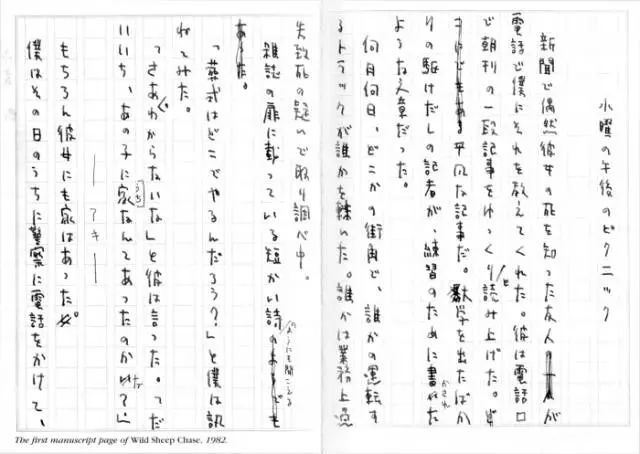 水曜の午後のピクニック
新聞で偶然彼女の死を知った友人の一人が
電話で僕にそれを教えてくれた。彼は電話口
で朝刊の一段記事をゆっくりと読み上げた。
平凡な記事だ。大学を出たばか
りの駆けだしの記者が、練習のために書かされた
ような文章だった。
何月何日、どこかの街角で、誰かの運転す
るトラックが誰かを轢いた。誰かは業務上過
失致死の疑いで取り調べ中。
雑誌の扉に載っている短かい詩のようにも聞こえる
「葬式はどこでやるんだろう?」と僕は訊
ねてみた。
「さあ、わからないな」と彼は言った。「だ
いいち、あの子に家なんてあったのかな?」
―アキ―
もちろん彼女にも家はあった。
僕はその日のうちに警察に電話をかけて、
The first manuscript page of Wild Sheep Chase, 1982.